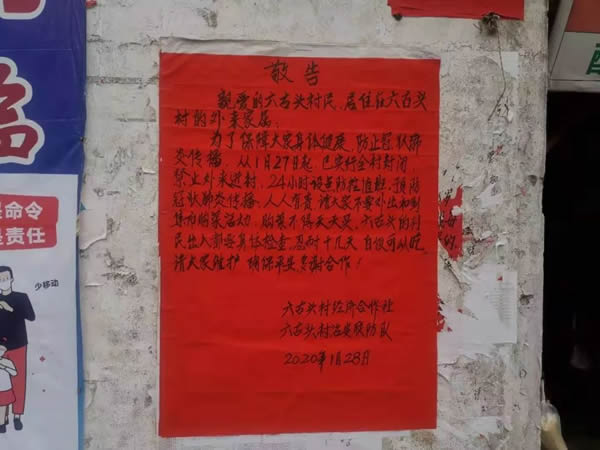 敬告
亲爱的六古头村民、居住在六古头
村的外来家属:
为了保障大家身体健康、防止冠状肺
炎传播、从1月27日起、已实行全村封闭、
禁止外来进村,24小时设点防控值班,预防
冠状肺炎传播、人人有责,请大家不要外出和到
集市购菜活动、购菜不得天天买,六古头的村
民出入都要身体检查,忍耐十几天
请大家维护 确保平安,多谢合作!
六古头村经济合作社
六古头村治安联防队
2020年1月28日
是命令
是责任
少移动